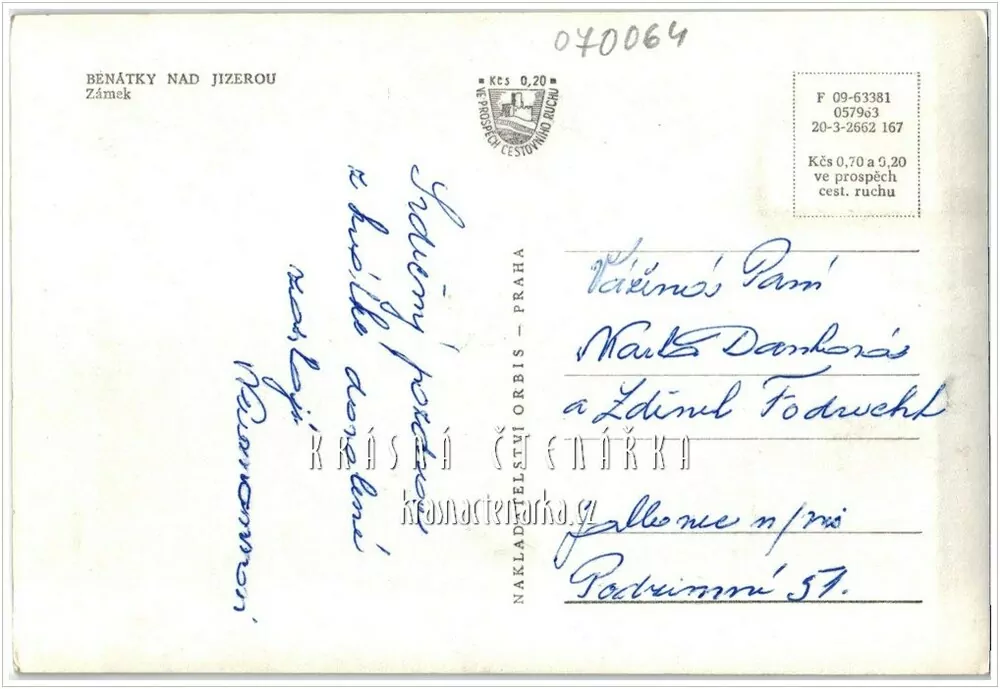 070064
BENÁTKY NAD JIZEROU
Zámek
Kčs 0,20
VE PROSPĚCH CESTOVNÍHO RUCHU
F 09-63381
057963
20-3-2662 167
Kčs 0,70 a 0,20
ve prospěch
cest. ruchu
Srdečný pozdrav
z krátké dovolené
zasílají
NAKLADATELSTVÍ ORBIS — PRAHA
Vážená Paní
Marta Dankova
a Zdeněk
Jablonec n/nis
Podzimní 51.
KRÁSNÁ ČTENÁŘKA
krasnactenarka.cz